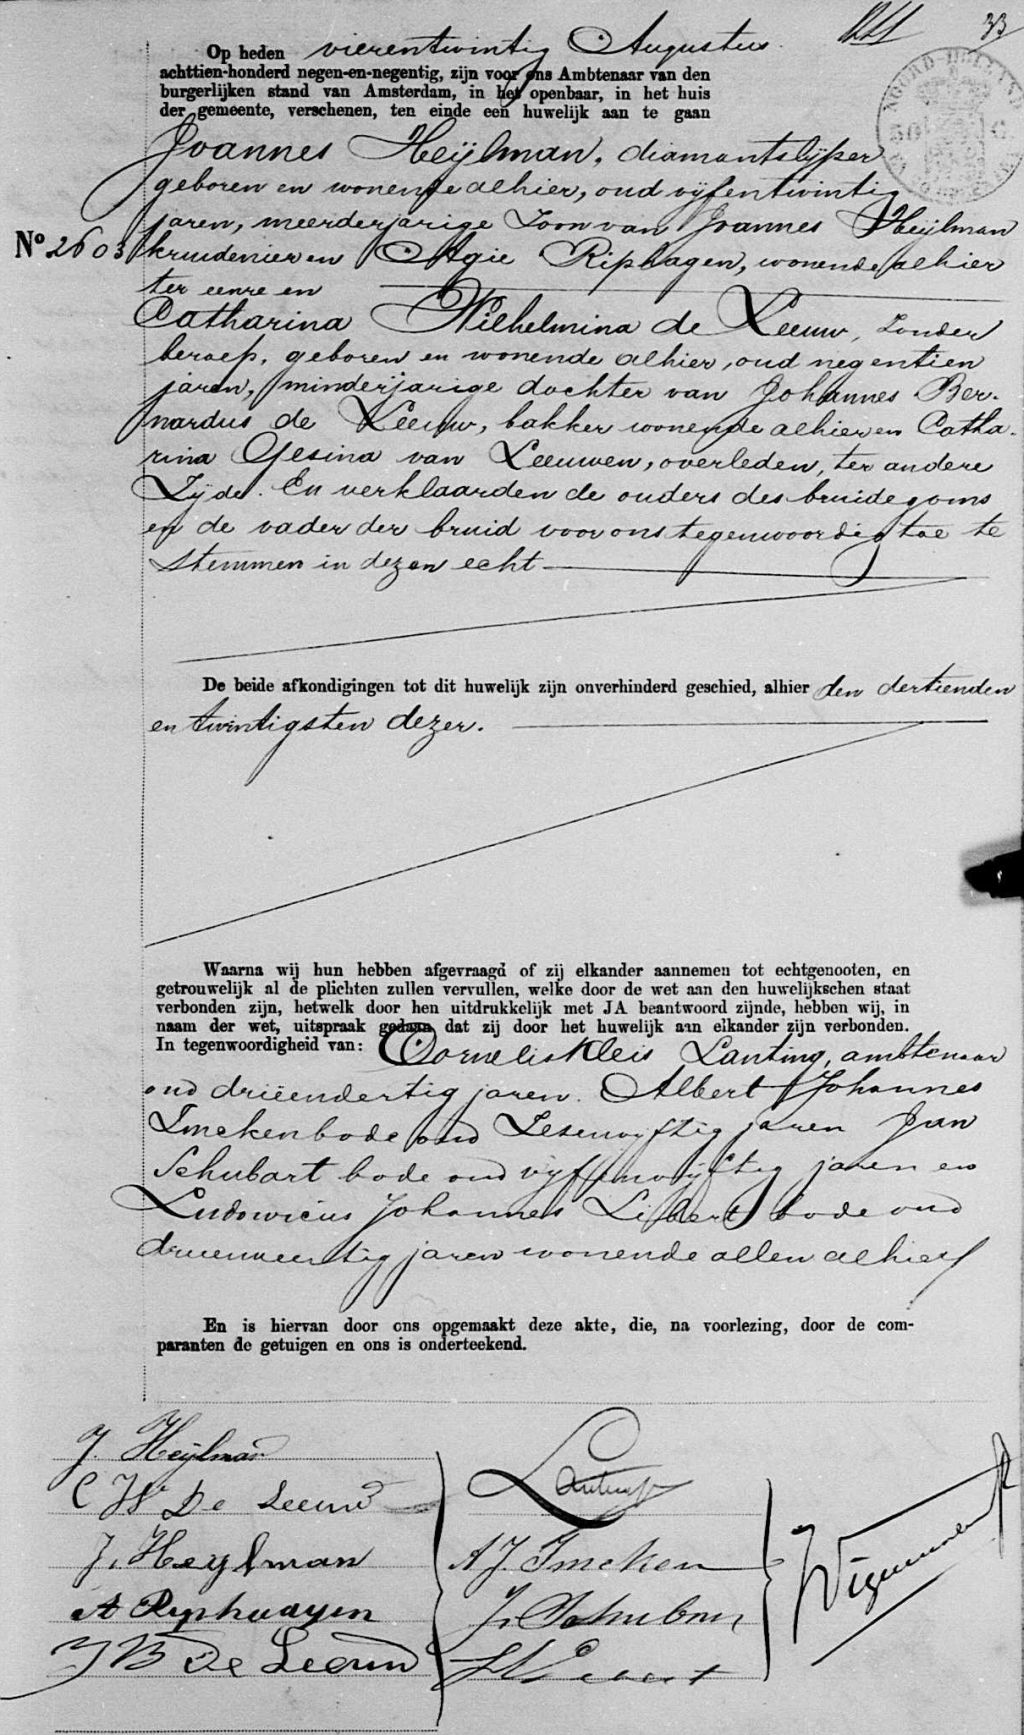 33
NOORD-HOLLAND
50 C.
Op heden vierentwintig Augustus
achttien-honderd negen-en-negentig, zijn voor ons Ambtenaar van den
burgerlijken stand van Amsterdam, in het openbaar, in het huis
der gemeente, verschenen, ten einde een huwelijk aan te gaan
Joannes Heijlman, diamantslijper
geboren en wonende alhier, oud vijfentwintig
jaren, meerderjarige Zoon van Joannes Heijlman
No 2603 kruidenier en Agie Riphagen, wonende alhier
ter eenre en
Catharina Wilhelmina de Leeuw, zonder
beroep, geboren en wonende alhier, oud negentien
jaren, minderjarige dochter van Johannes Ber-
nardus de Leeuw, bakker wonende alhier en Catha-
rina Gesina van Leeuwen, overleden, ter andere
Zijde. En verklaarden de ouders des bruidegoms
en de vader der bruid voor ons tegenwoordig toe te
stemmen in dezen echt
De beide afkondigingen tot dit huwelijk zijn onverhinderd geschied, alhier den dertienden
en twintigsten dezer.
Waarna wij hun hebben afgevraagd of zij elkander aannemen tot echtgenooten, en
getrouwelijk al de plichten zullen vervullen, welke door de wet aan den huwelijkschen staat
verbonden zijn, hetwelk door hen uitdrukkelijk met JA beantwoord zijnde, hebben wij, in
naam der wet, uitspraak gedaan dat zij door het huwelijk aan elkander zijn verbonden.
In tegenwoordigheid van: Cornelis Kleis Lanting, ambtenaar
oud drieëndertig jaren. Albert Johannes
Imeken bode oud Zesenvijftig jaren Jan
Schubart bode oud vijfenvijftig jaren en
Ludowicus Johannes Libert bode oud
drieenveertig jaren wonende allen alhier
En is hiervan door ons opgemaakt deze akte, die, na voorlezing, door de com-
paranten de getuigen en ons is onderteekend.
J. Heijlman
C W De Leeuw
J. Heylman
A Ryphagen
J B De Leeuw
Lanting
A J. Imeken
J. Schubart